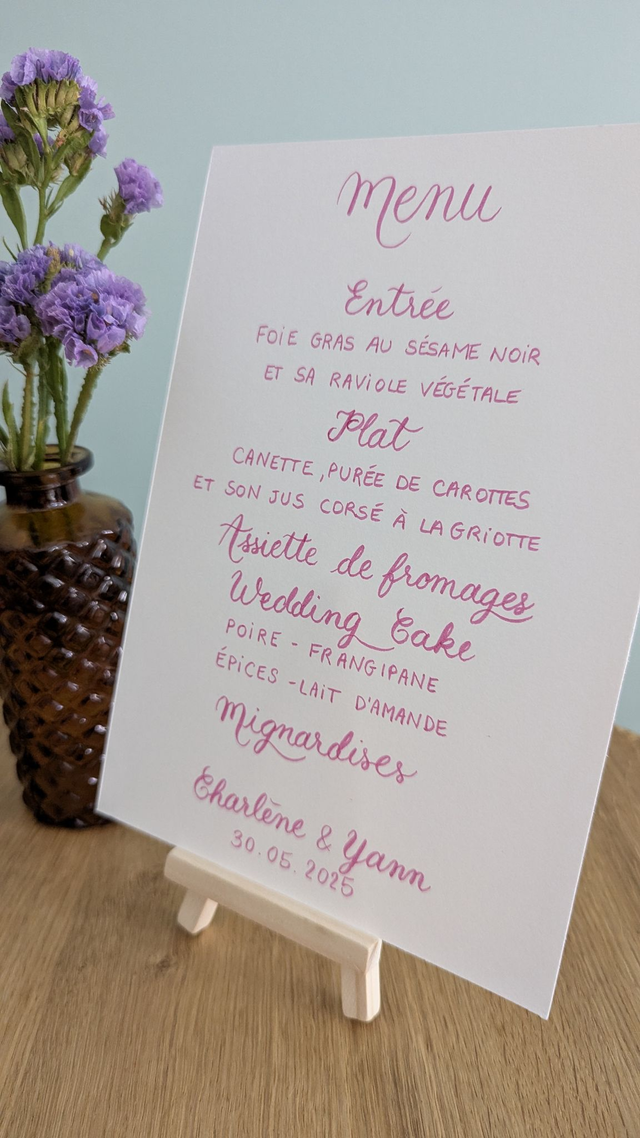 Menu
Entrée
FOIE GRAS AU SÉSAME NOIR
ET SA RAVIOLE VÉGÉTALE
Plat
CANETTE, PURÉE DE CAROTTES
ET SON JUS CORSÉ À LA GRIOTTE
Assiette de fromages
Wedding Cake
POIRE - FRANGIPANE
ÉPICES - LAIT D'AMANDE
Mignardises
Charlène & Yann
30.05.2025